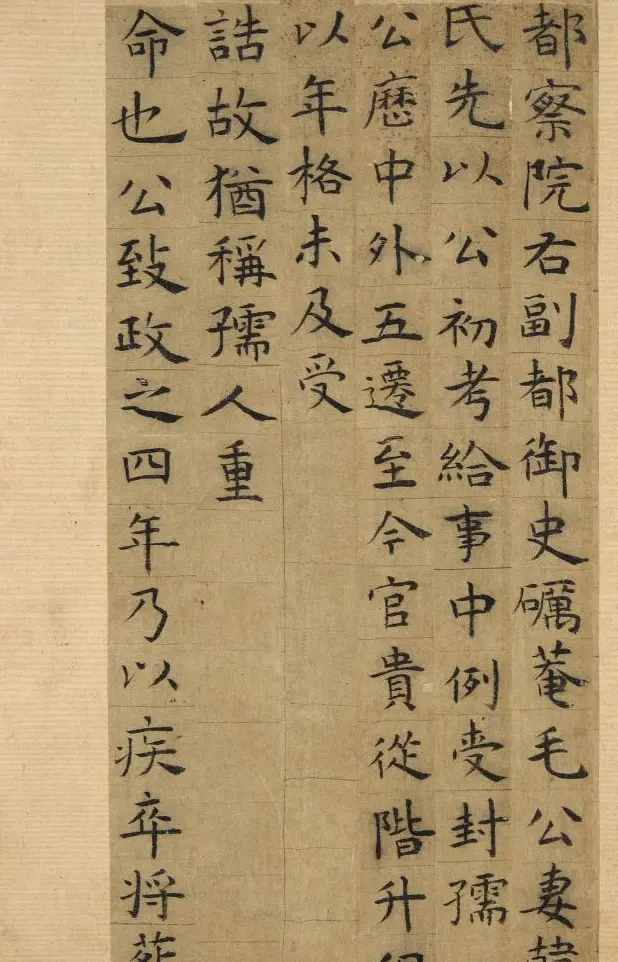 都察院右副都御史礪菴毛公妻韓
氏先以公初考給事中例受封孺
公歷中外五遷至今官貴從階升
以年格未及受
誥故猶稱孺人重
命也公致政之四年乃以疾卒将葬